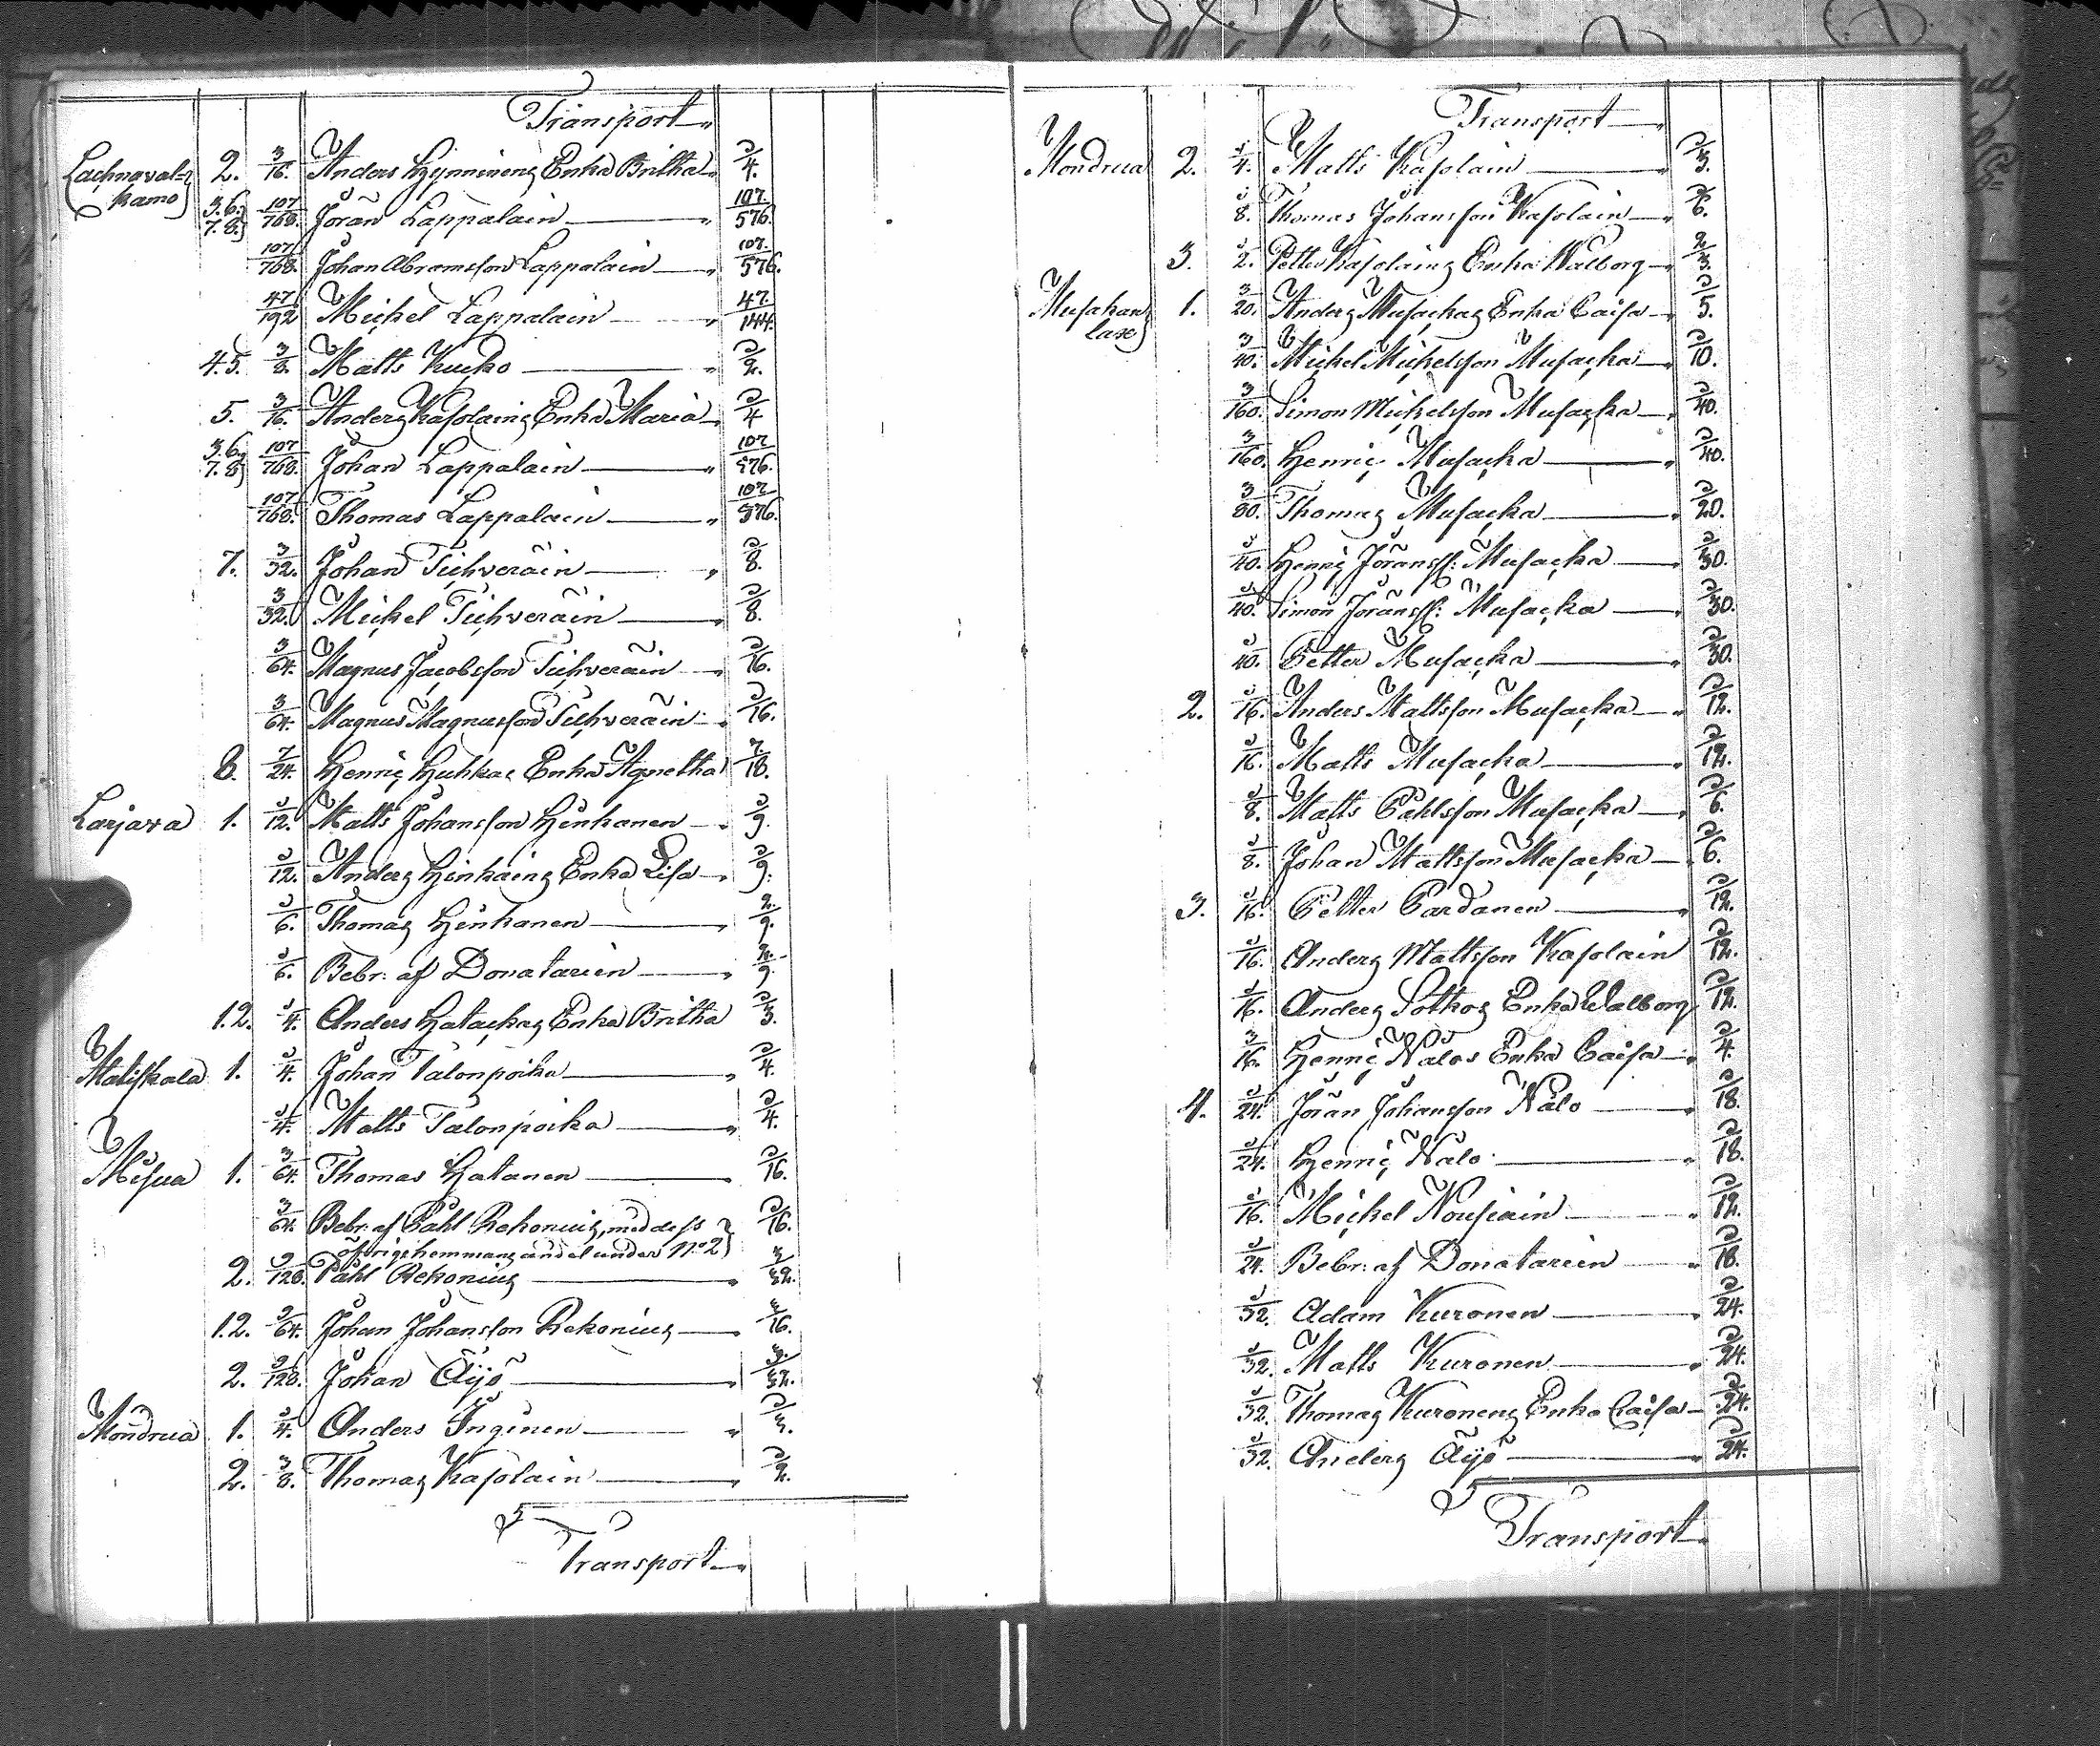 Transport
Lachnaval= 2. 3/16. Anders Hynninens Enka Britha 1/4.
kamo 3.6. 7.8. 107/768. Jöran Lappalain 107/576.
107/768. Johan Abramsson Lappalain 107/576.
47/192 Michel Lappalain 47/144.
4.5. 3/8. Matts Kucko 1/2.
5. 3/16. Anders Kasolains Enka Maria 1/4
3.6. 7.8. 107/768. Johan Lappalain 107/576.
107/768. Thomas Lappalain 107/576.
7. 3/32. Johan Tichveräin 1/8.
3/32. Michel Tichveräin 1/8.
3/64. Magnus Jacobsson Tichveräin 1/16.
3/64. Magnus Magnusson Tichveräin 1/16.
8. 7/24. Henric Huhkas Enka Agnetha 7/18.
Larjava 1. 1/12. Matts Johansson Hinkanen 1/9.
1/12. Anders Hinkains Enka Lisa 1/9.
1/6. Thomas Hinkanen 2/9.
1/6. Bebr: af Donatarien 2/9.
1.2. 1/4. Anders Hatackas Enka Britha 1/3.
Matiskala 1. 1/4. Johan Talonpoika 1/4.
1/4. Matts Talonpoika 1/4.
Mesua 1. 3/64. Thomas Hatanen 1/16.
3/64. Bebr: af Påhl Rekonius, med dess 1/16.
öfrige hemmans andel under No 2
2. 9/128. Påhl Rekonius 3/32.
1.2. 9/64. Johan Johansson Rekonius 3/16.
2. 9/128. Johan Äijö 3/32.
Mondrua 1. 1/4. Anders Inginen 1/3.
2. 3/8. Thomas Kasolain 1/2.
Transport
Transport
Mondrua 2. 1/4. Matts Kasolain 1/3.
1/8. Thomas Johansson Kasolain 1/6.
3. 1/2. Petter Kasolains Enka Walborg 2/3.
Musakan 1. 3/20. Anders Musackas Enka Caisa 1/5.
laxe 3/40. Michel Michelsson Musacka 1/10.
3/160. Simon Michelsson Musacka 1/40.
3/160. Henric Musacka 1/40.
3/80. Thomas Musacka 1/20.
1/40. Henric Jöranss: Musacka 1/30.
1/40. Simon Jöranss: Musacka 1/30.
1/40. Petter Musacka 1/30.
2. 1/16. Anders Mattsson Musacka 1/12.
1/16. Matts Musacka 1/12.
1/8. Matts Påhlsson Musacka 1/6.
1/8. Johan Mattsson Musacka 1/6.
3. 1/16. Petter Pardanen 1/12.
1/16. Anders Mattsson Kasolain 1/12.
1/16. Anders Sotkas Enka Walborg 1/12.
3/16. Henric Nålos Enka Caisa 1/4.
4. 1/24. Jöran Johansson Nålo 1/18.
1/24. Henric Nålo 1/18.
1/16. Michel Nousiain 1/12.
1/24. Bebr: af Donatarien 1/18.
1/32. Adam Kuronen 1/24.
1/32. Matts Kuronen 1/24.
1/32. Thomas Kuronens Enka Caisa 1/24.
1/32. Anders Äijö 1/24.
Transport